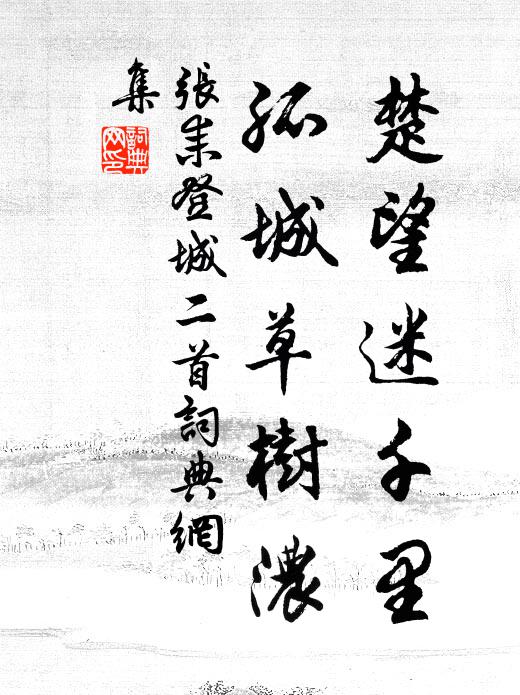 楚望迷千里
孤城草樹濃
張耒登城二首詞典網
集
詞典
网印